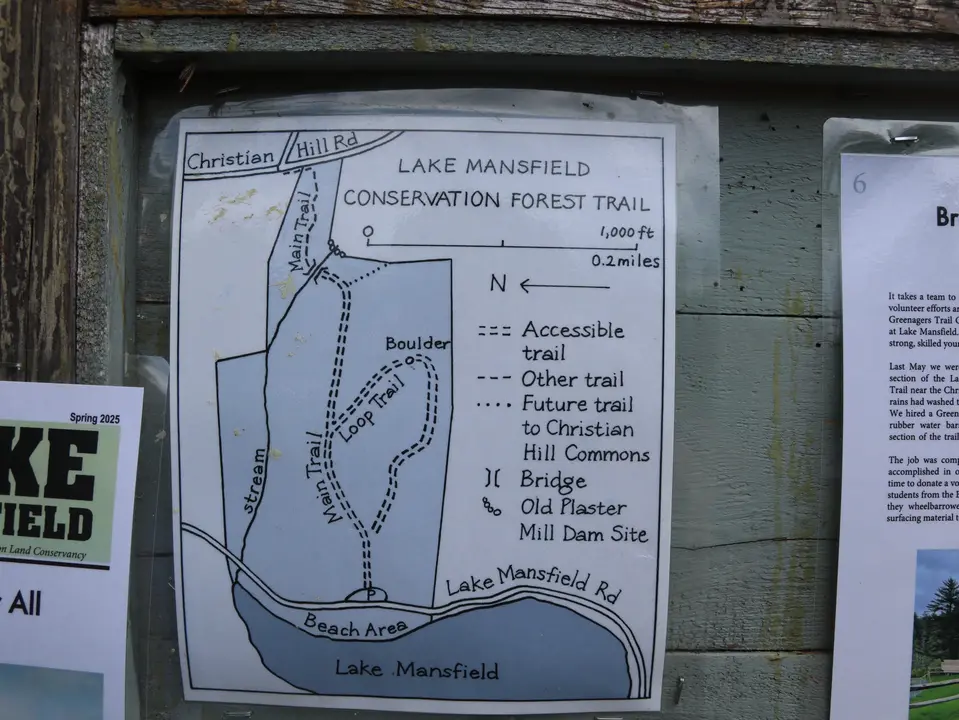 Christian Hill Rd
LAKE MANSFIELD
CONSERVATION FOREST TRAIL
1,000 ft
0.2 miles
N
Main Trail
Accessible
trail
Other trail
Future trail
to Christian
Hill Commons
Bridge
Old Plaster
Mill Dam Site
Boulder
Loop Trail
Main Trail
stream
P
Lake Mansfield Rd
Beach Area
Lake Mansfield
Spring 2025
KE
FIELD
on Land Conservancy
All
6
Br
It takes a team to
volunteer efforts a
Greenagers Trail C
at Lake Mansfield.
strong, skilled your
Last May we were
section of the La
Trail near the Chr
rains had washed t
We hired a Green
rubber water bar
section of the trail
The job was comp
accomplished in o
time to donate a vo
students from the B
they wheelbarrowe
surfacing material t